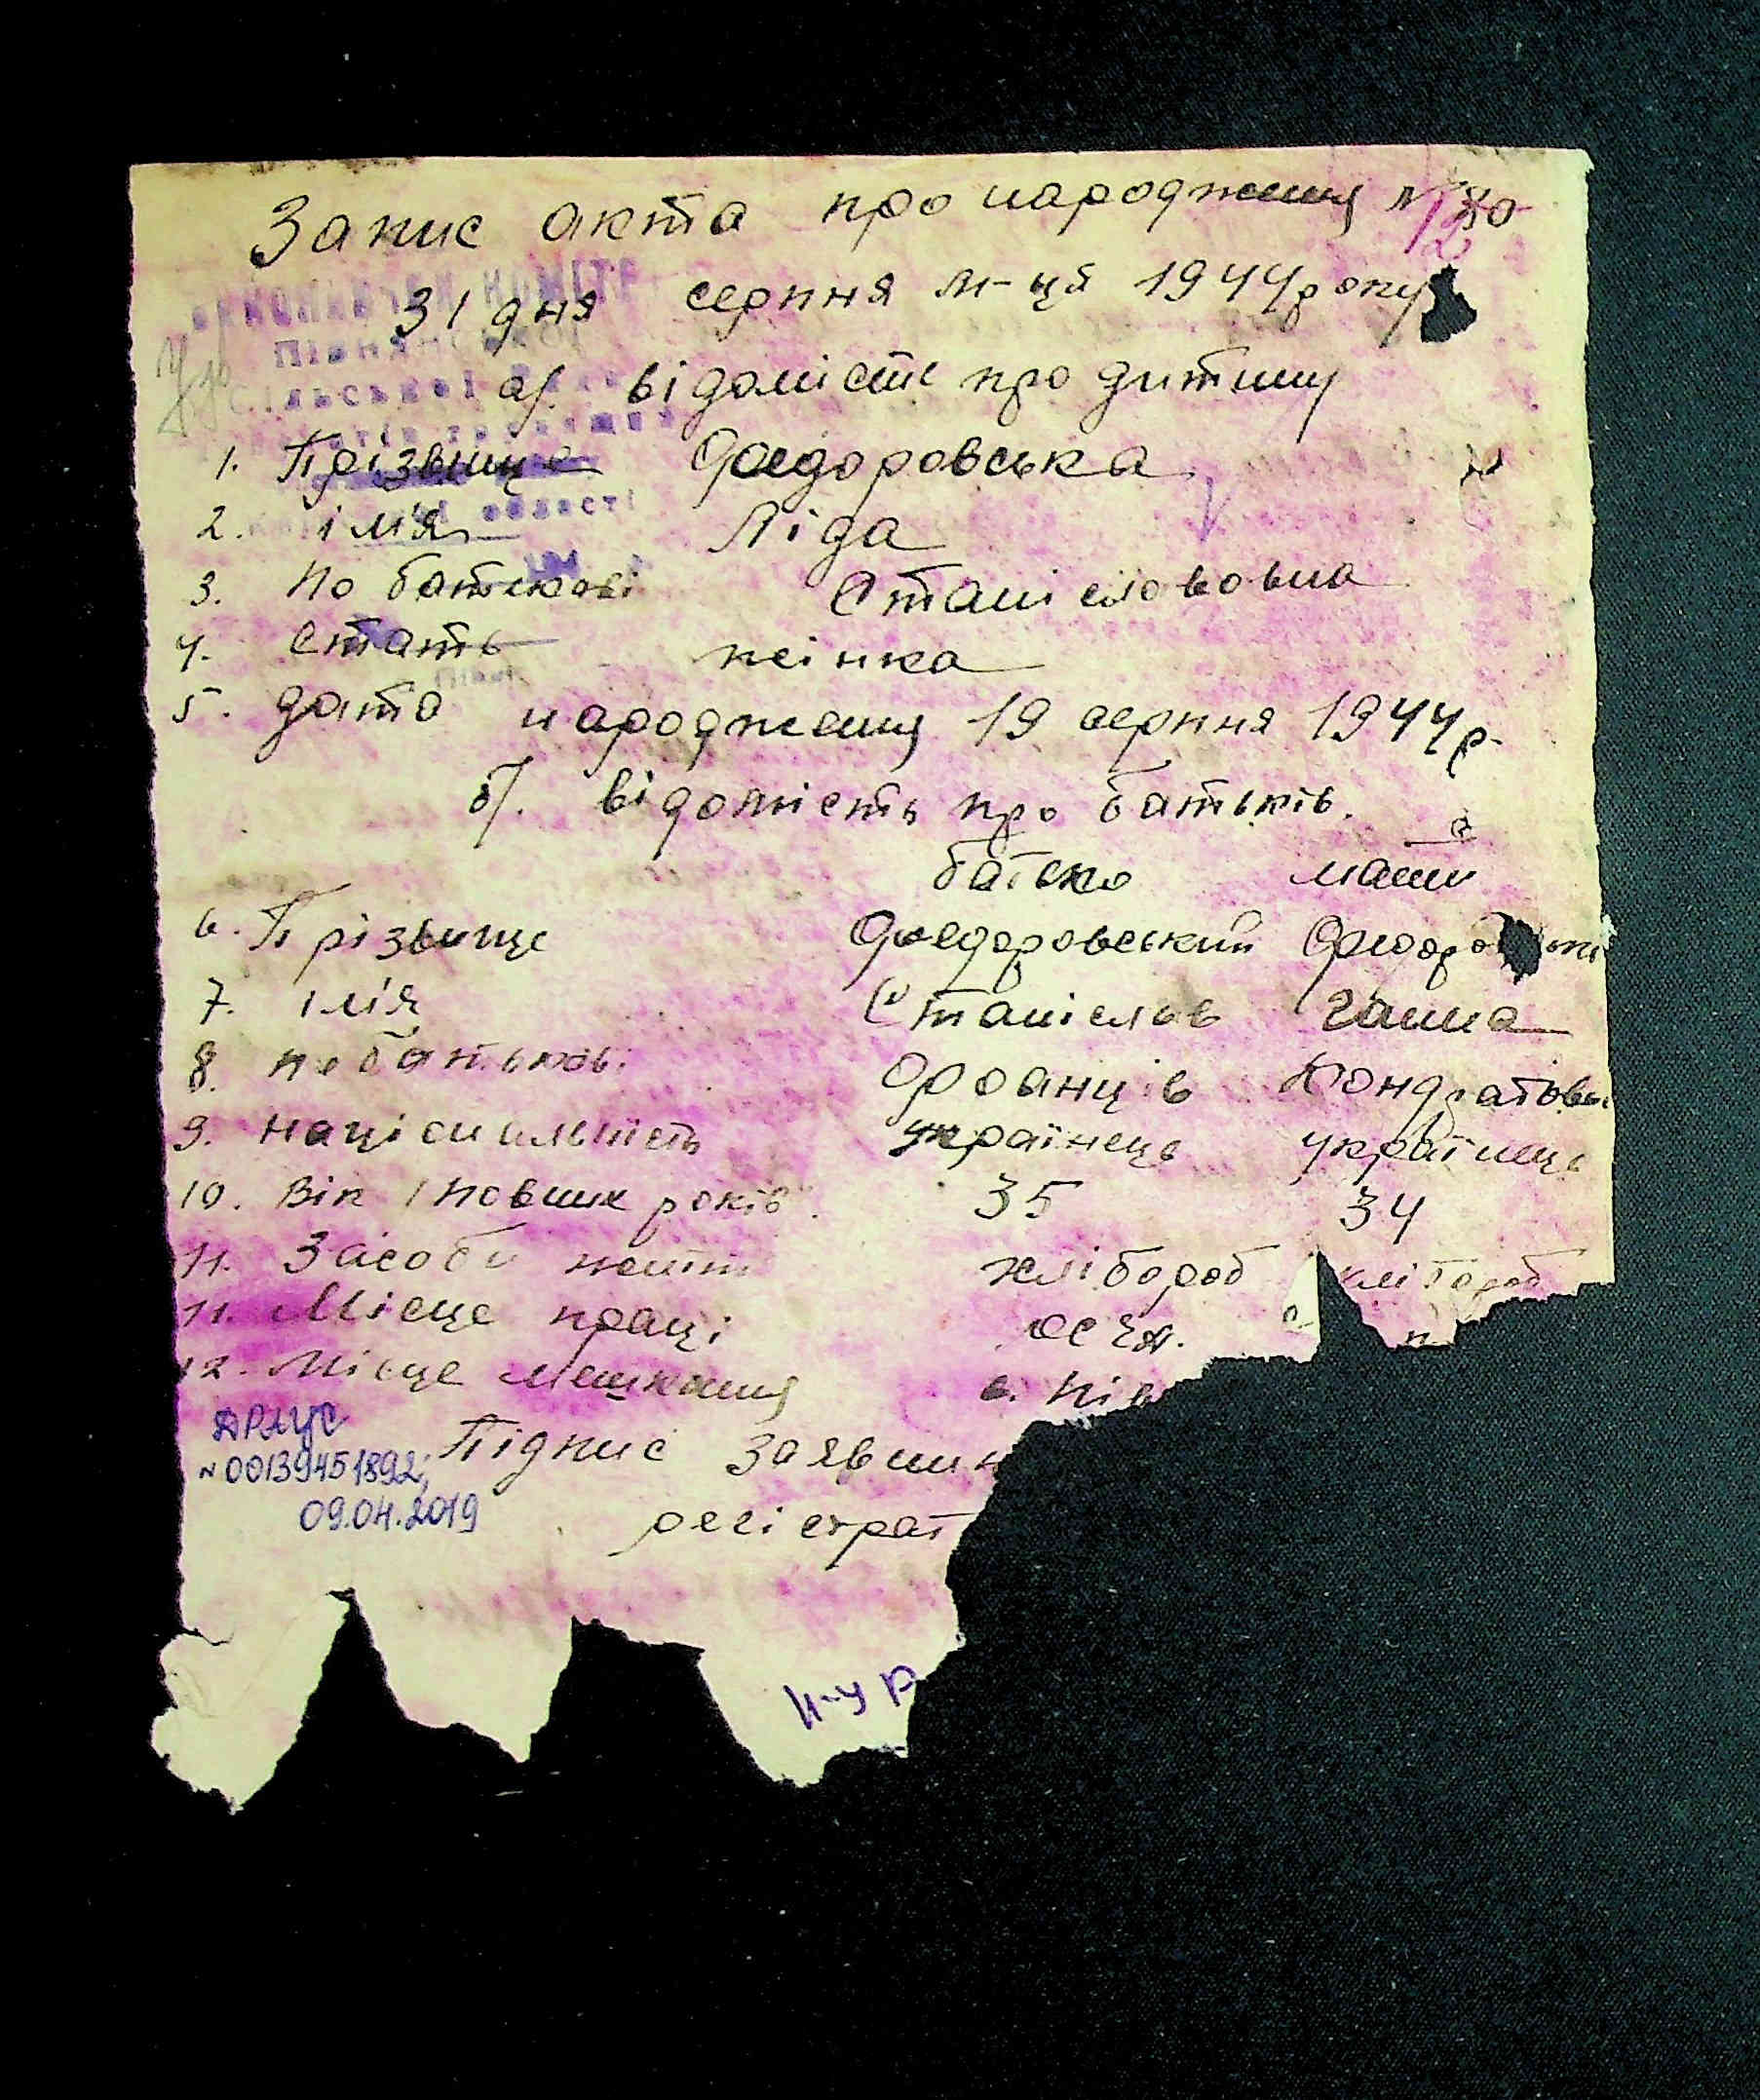 Запис акта про народження № 80
12
31 дня серпня м-ця 1944 року
а/. відомість про дитину
1. Прізвище Федоровська
2. імя Ліда
3. По батькові Станіславовна
4. Стать жінка
5. дата народження 19 серпня 1944 р.
б/. відомість про батьків.
батько мати
6. Прізвище Федоровський
7. імя Станіслав Ганна
8. по батькові Франців Кондратовн
9. національність українець українець
10. Вік /повних років 35 34
11. Засоби життя хлібороб хлібороб
11. Місце праці
12. Місце мешкання с. Пів
ДРАЦС
№ 00139451892;
09.04.2019
Підпис заявник
регістрат
н-ур
виконавчий коміте
Півнянської
Сільської Ради
області